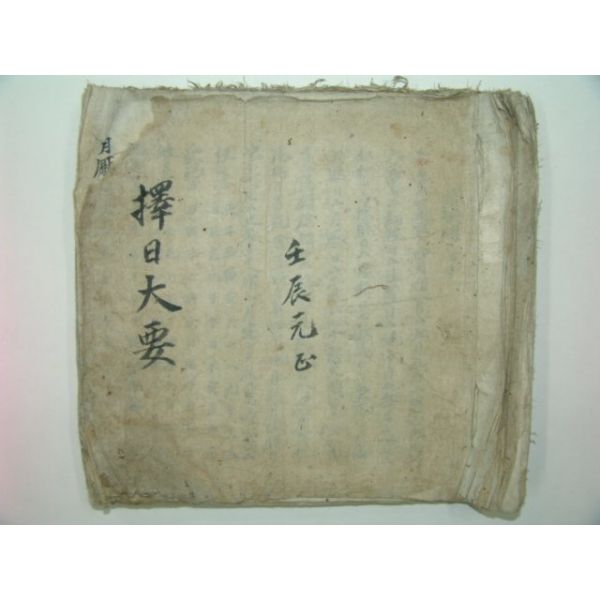 壬辰元正
擇日大要
月